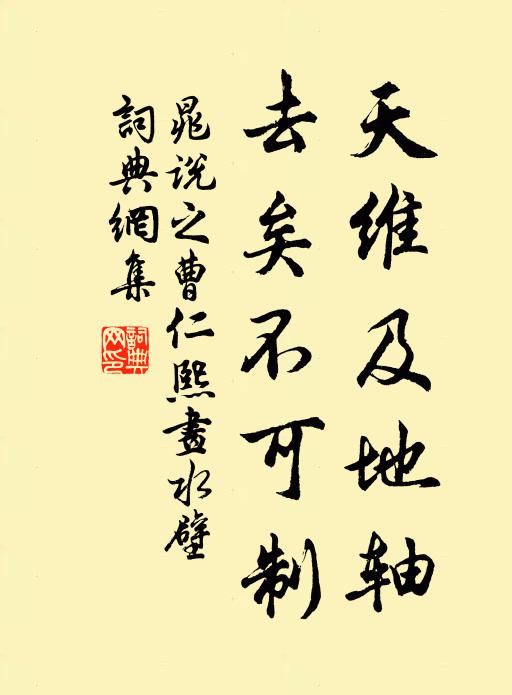 天维及地轴
去矣不可制
晁说之曹仁熙畫水壁
詞典網集
詞典
网印